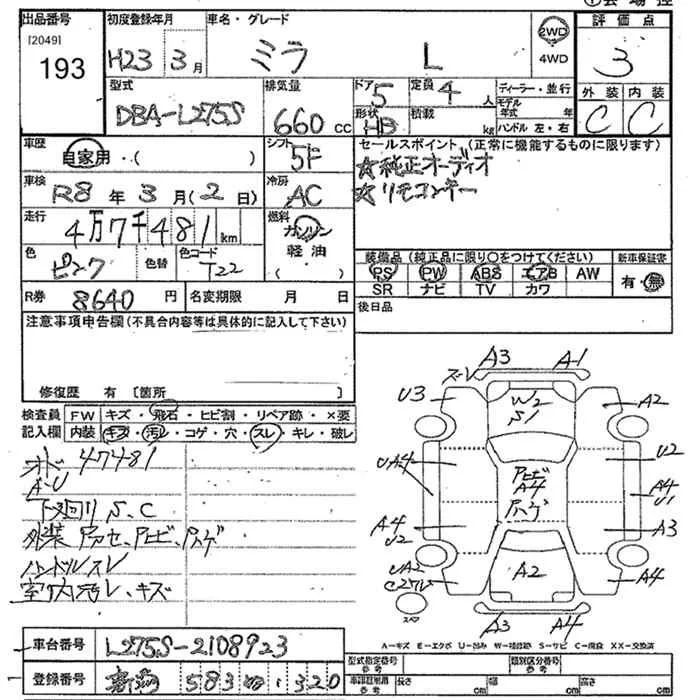 出品番号 初度登録年月 車名・グレード 評価点
[2049]
193 H23年 3月 ミラ L 2WD 4WD 3
型式 排気量 ドア 5 定員 4人 ディーラー・並行 外装 内装
DBA-L275S 660cc 形状 HB 積載 kg モデル年式 年 C C
ハンドル 左・右
車歴 自家用・( ) シフト 5F セールスポイント(正常に機能するものに限ります)
☆純正オーディオ
☆リモコンキー
車検 R8年3月(2日) 冷房 AC
走行 4万7千481km 燃料 ガソリン 軽油 ( )
色 ピンク 色替 色コード T22
装備品(純正品に限り○をつけてください) 新車保証書
PS PW ABS エアB AW 有・無
SR ナビ TV カワ
R券 8640円 名変期限 月 日 後日品
注意事項申告欄(不具合内容等は具体的に記入して下さい)
修復歴 有〔箇所 〕
検査員 FW キズ・飛石・ヒビ割・リペア跡・×要
記入欄 内装 キズ・汚レ・コゲ・穴・スレ・キレ・破レ
オド 47481
A-U
下廻り S、C
外装 アクセ、アヒビ、アハゲ
ハンドルスレ
室内汚レ、キズ
ズレ A3 A1
U3 W2 S1 A2
UA4 U2
アヒビ A4 アハゲ A4 U1
A4 U2 A3
UA2 A2 A4
スペア
A3 A4
A-キズ E-エクボ U-凹み W-補修跡 S-サビ C-腐食 XX-交換済
車台番号 L275S-2108923
登録番号 583 320
型式指定番号 参考 類別区分番号 参考
車検証数用 参考 長さ cm 幅 cm 高さ cm